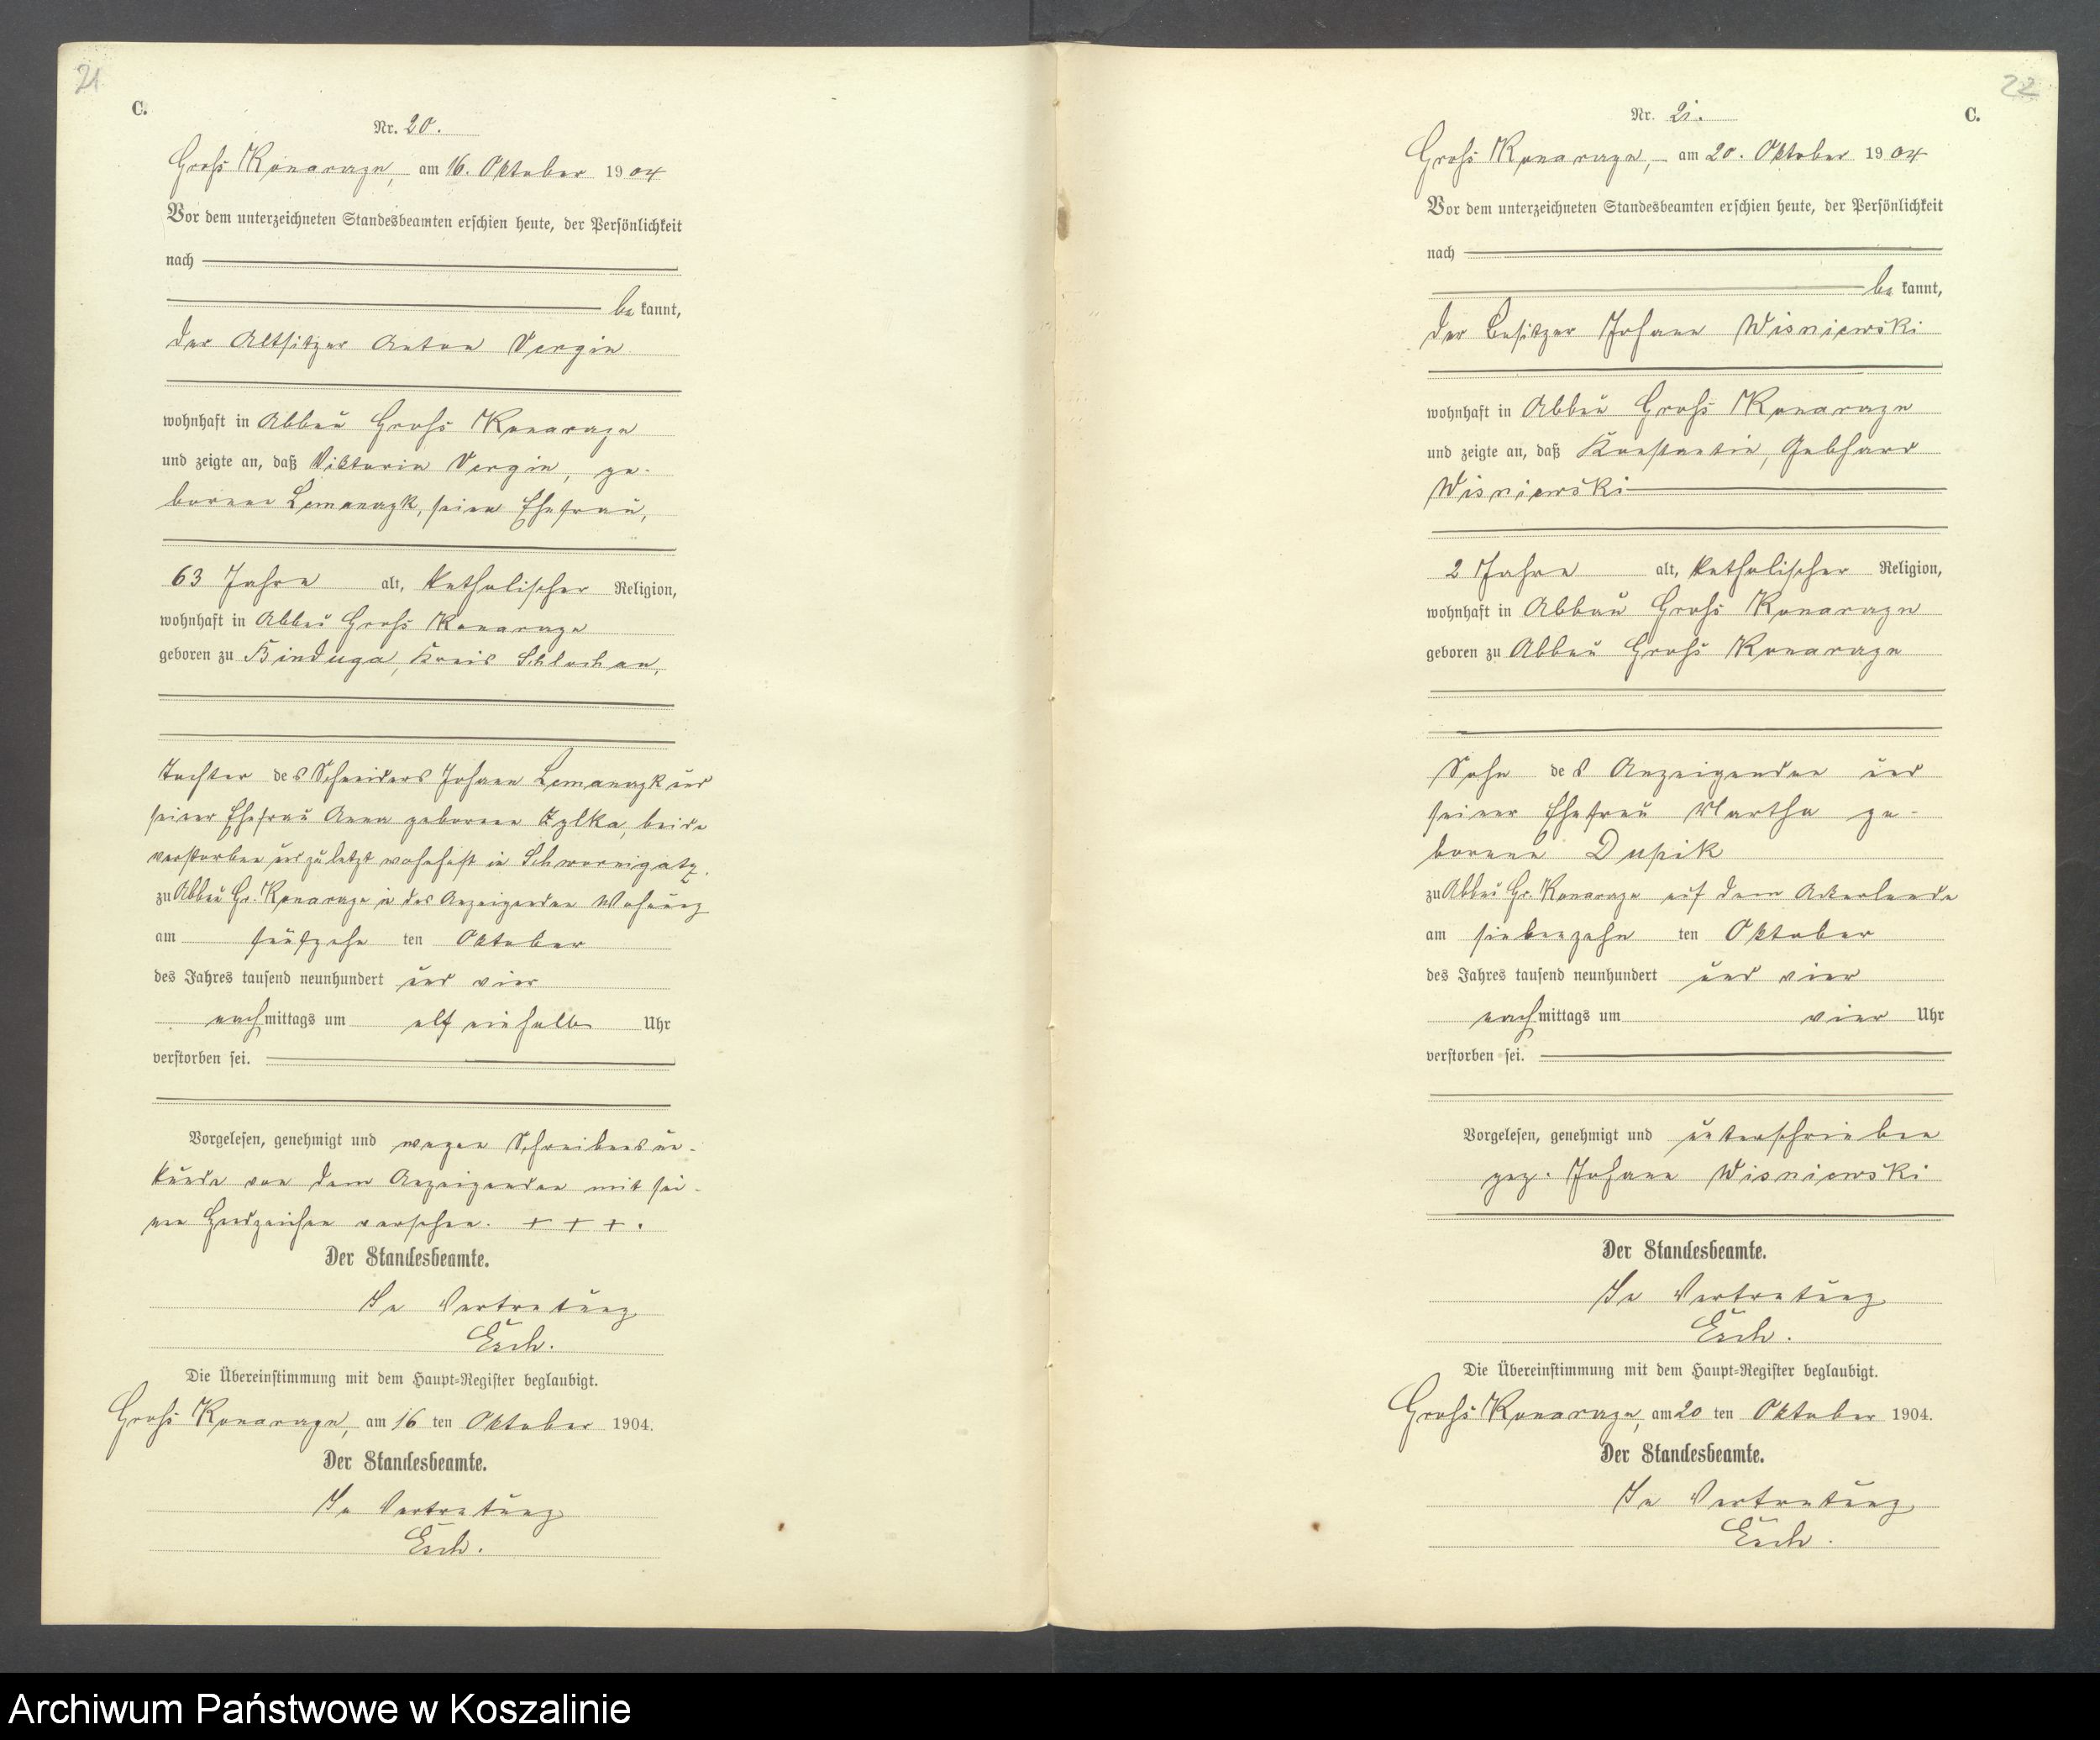 21
C.
Nr. 20.
Groß Konarczyn, am 16. Oktober 1904
Vor dem unterzeichneten Standesbeamten erschien heute, der Persönlichkeit
nach
be kannt,
der Altsitzer Anton Vergin
wohnhaft in Abbau Groß Konarczyn
und zeigte an, daß Viktoria Vergin, ge-
borene Lemanczyk, seine Ehefrau,
63 Jahre alt, katholischer Religion,
wohnhaft in Abbau Groß Konarczyn
geboren zu Binduga, Kreis Schlochau,
Tochter des Schneiders Johann Lemanczyk und
seiner Ehefrau Anna geborene Zylka, beide
verstorben und zuletzt wohnhaft in Schwornigatz.
zu Abbau Gr. Konarczyn in des Anzeigenden Wohnung
am fünfzehn ten Oktober
des Jahres tausend neunhundert und vier
nachmittags um elf einhalb Uhr
verstorben sei.
Vorgelesen, genehmigt und wegen Schreibensun-
kunde von dem Anzeigenden mit sei-
nen Handzeichen versehen. + + + .
Der Standesbeamte.
In Vertretung
Esch.
Die Übereinstimmung mit dem Haupt-Register beglaubigt.
Groß Konarczyn, am 16 ten Oktober 1904.
Der Standesbeamte.
In Vertretung
Esch.
22
Nr. 21. C.
Groß Konarczyn, am 20. Oktober 1904
Vor dem unterzeichneten Standesbeamten erschien heute, der Persönlichkeit
nach
be kannt,
der Besitzer Johann Wisniewski
wohnhaft in Abbau Groß Konarczyn
und zeigte an, daß Konstantin, Gebhard
Wisniewski
2 Jahre alt, katholischer Religion,
wohnhaft in Abbau Groß Konarczyn
geboren zu Abbau Groß Konarczyn
Sohn des Anzeigenden und
seiner Ehefrau Martha ge-
borene Dupik
zu Abbau Gr. Konarczyn auf dem Ackerlande
am siebenzehn ten Oktober
des Jahres tausend neunhundert und vier
nachmittags um vier Uhr
verstorben sei.
Vorgelesen, genehmigt und unterschrieben
gez. Johann Wisniewski
Der Standesbeamte.
In Vertretung
Esch.
Die Übereinstimmung mit dem Haupt-Register beglaubigt.
Groß Konarczyn, am 20 ten Oktober 1904.
Der Standesbeamte.
In Vertretung
Esch.
Archiwum Państwowe w Koszalinie